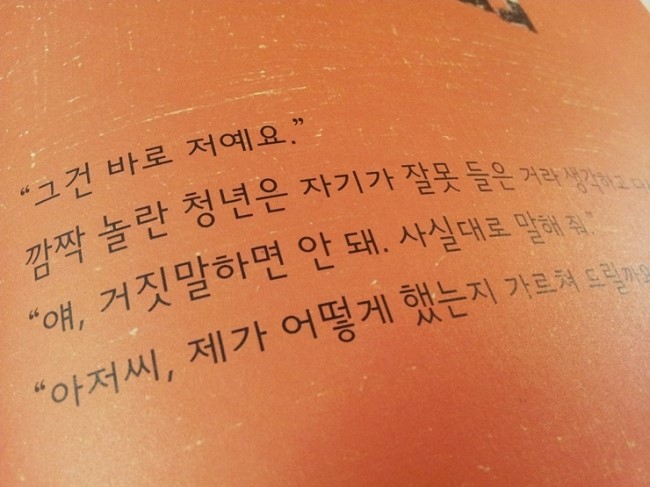 “그건 바로 저예요.”
깜짝 놀란 청년은 자기가 잘못 들은 거라 생각하고
“얘, 거짓말하면 안 돼. 사실대로 말해 줘.”
“아저씨, 제가 어떻게 했는지 가르쳐 드릴까요